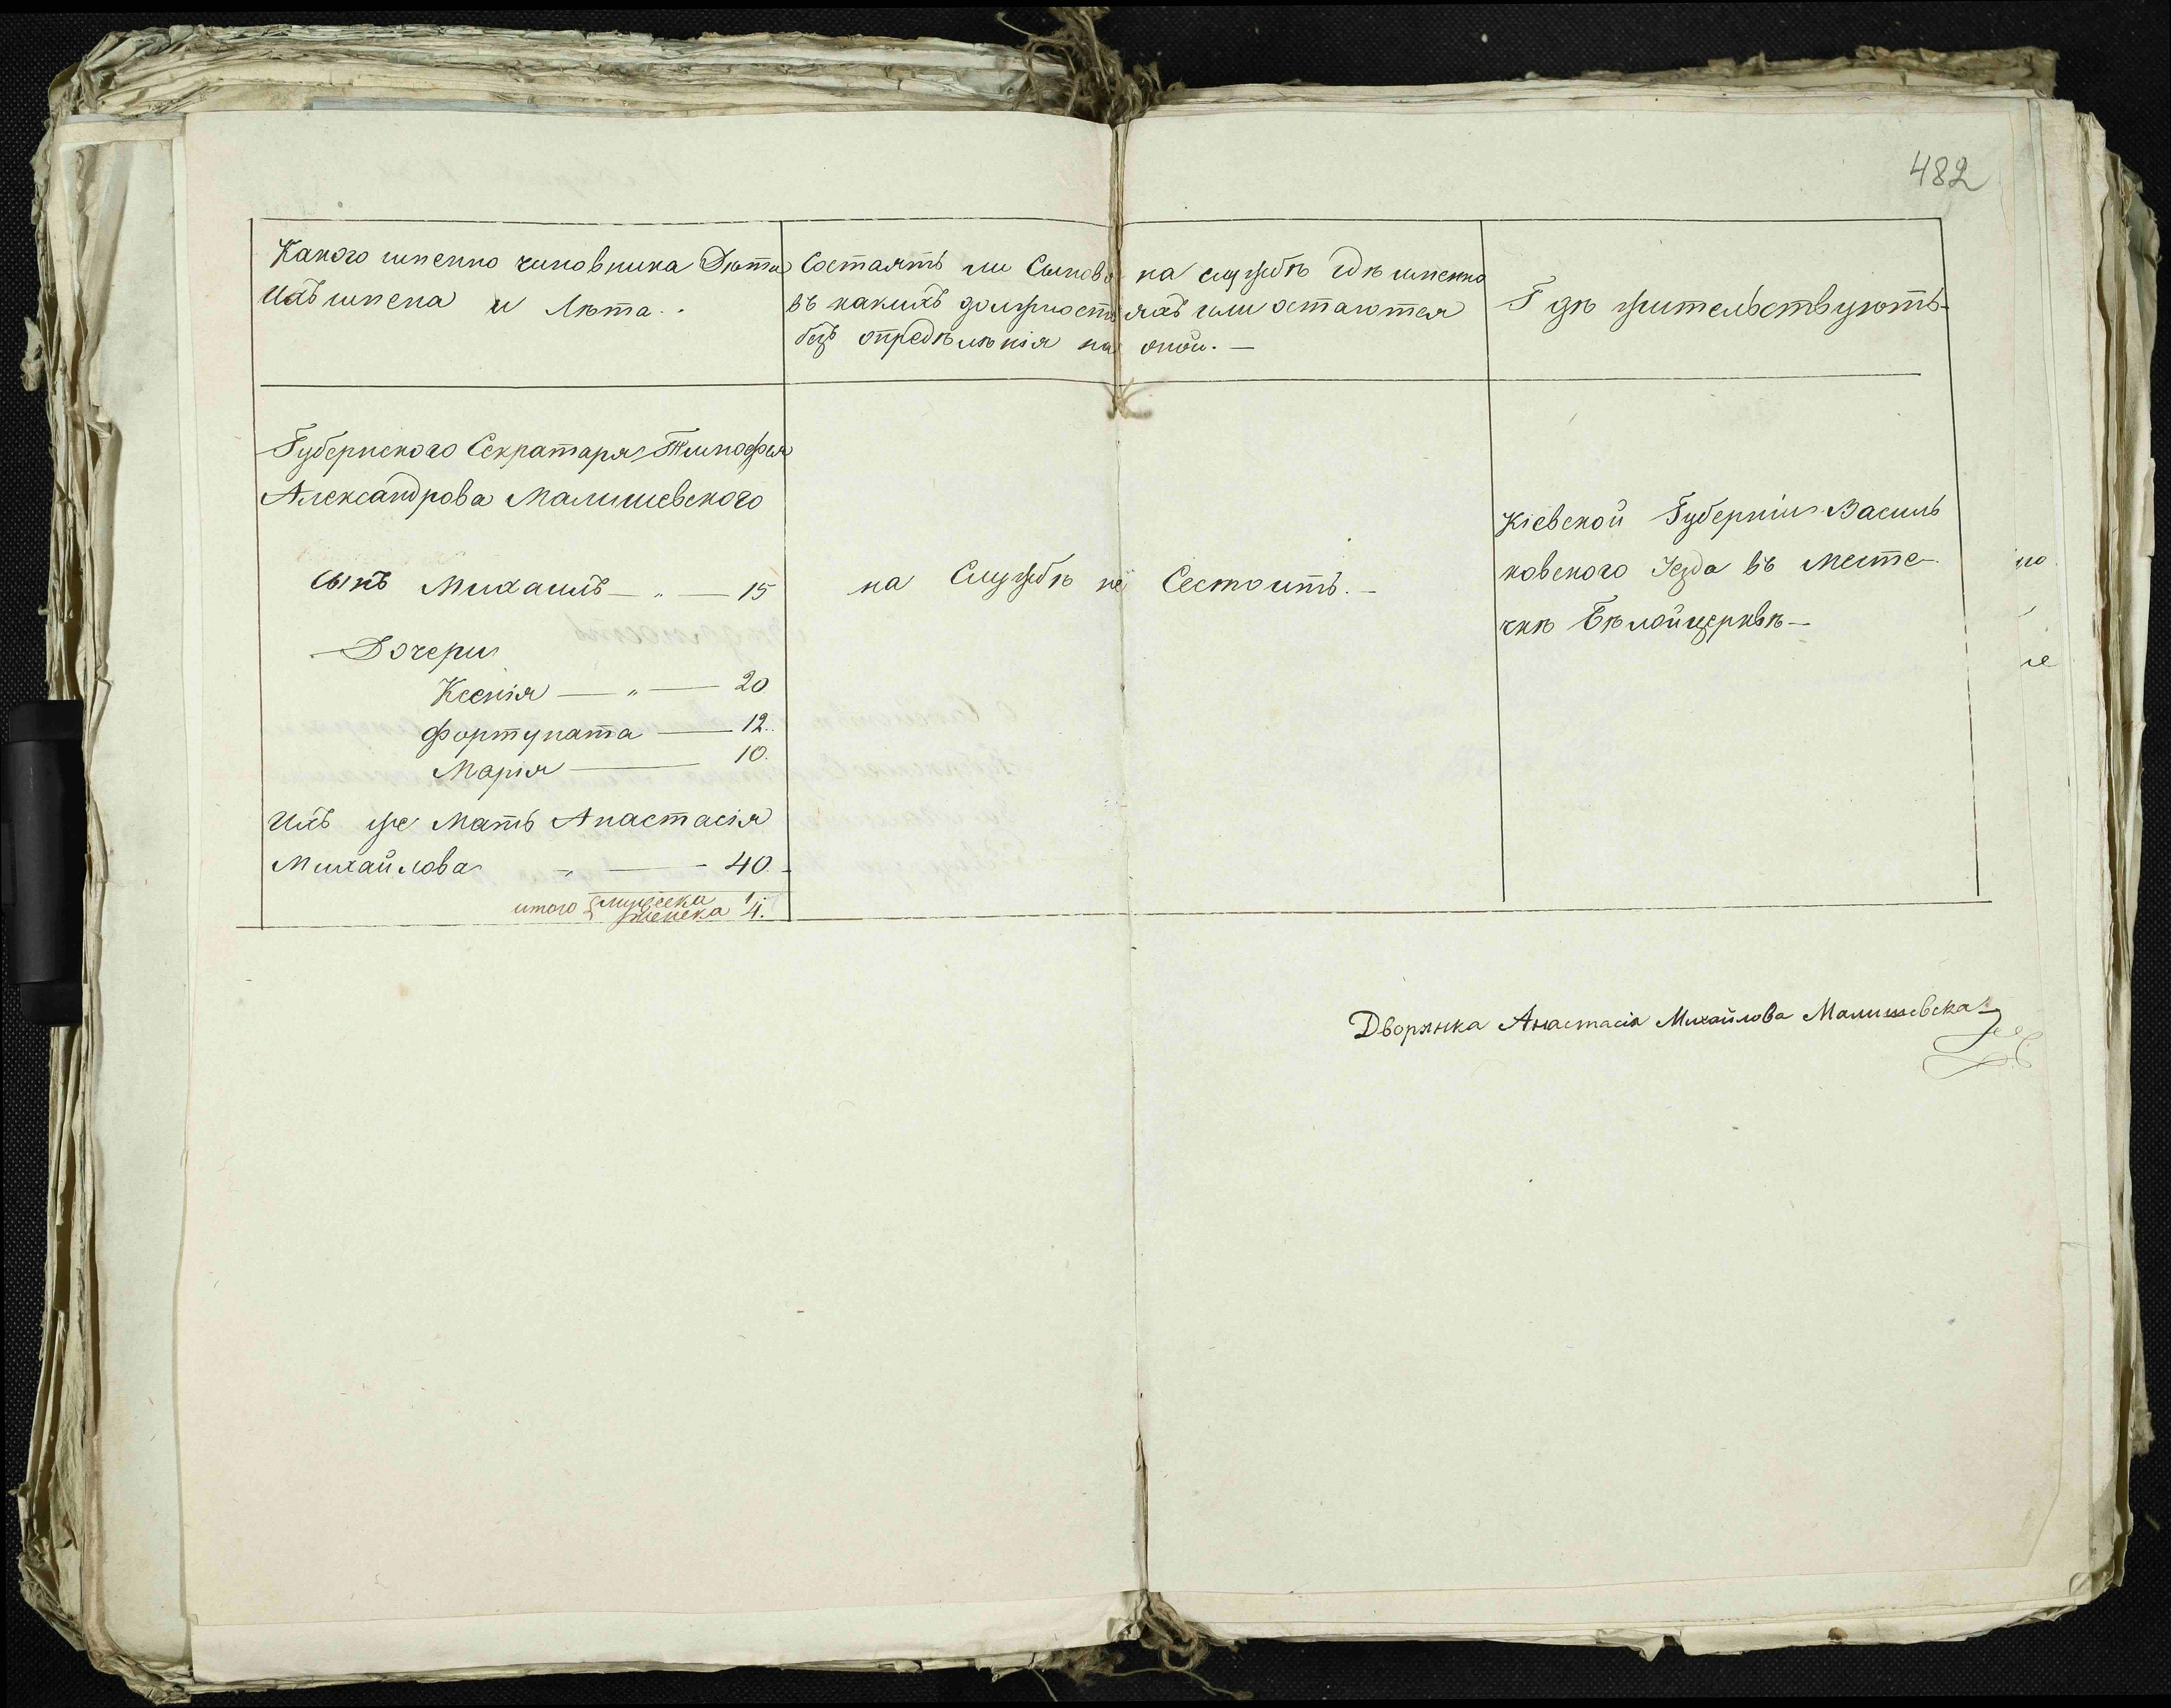 482
Какого импенно чиновника Дѣти
Ихъ импена и Лѣта..
Состаятъ ли Сынове на службѣ гдѣ импенно
въ какихъ должностяхъ или остаются
безъ опредѣлѣнія на оной.—
Гдѣ жительствуютъ-
Губернского Секратаря Тимофея
Александрова Малишевского
сынъ Михаилъ — „ — 15
Дочери
Ксенія — „ — 20
Фортуната — 12.
Марія — 10.
Ихъ же Мать Анастасія
Михайлова „ — 40.
итого мужеска 1
женска 4.
на Службѣ не Сестоитъ.—
Кіевской Губерніи Василь
ковского Уезда въ Месте-
чкѣ Бѣлойцерквѣ—
Дворянка Анастасія Михайлова Малишевска